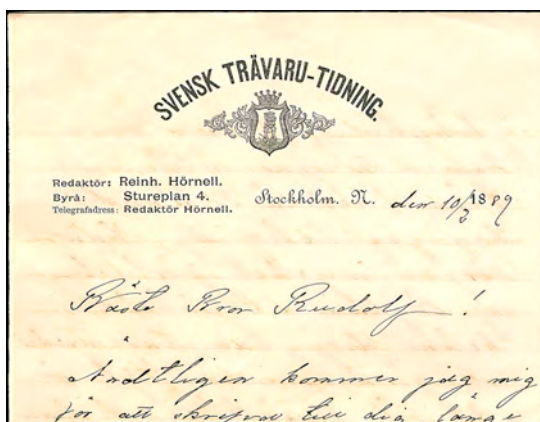 SVENSK TRÄVARU-TIDNING.
Redaktör: Reinh. Hörnell.
Byrå: Stureplan 4.
Telegrafadress: Redaktör Hörnell.
Stockholm. N. den 10/2 1889
Bäste Bror Rudolf!
Andtligen kommer jag mig
för att skrifva till dig länge